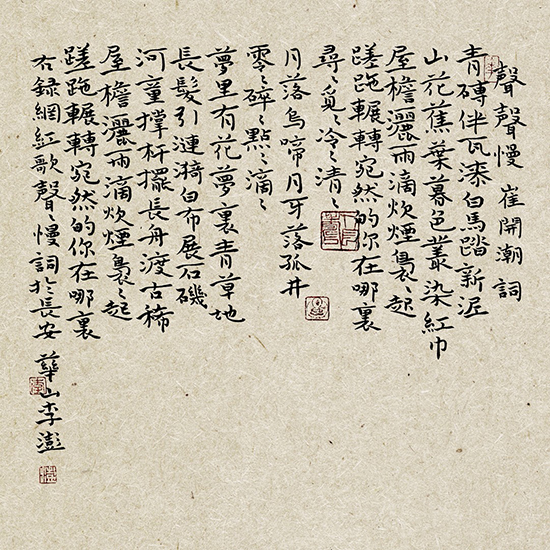 聲聲慢 崔開潮詞
青磚伴瓦漆白馬踏新泥
山花蕉葉暮色叢染紅巾
屋檐灑雨滴炊煙裊〻起
蹉跎輾轉宛然的你在哪裏
尋〻覓〻冷〻清〻
月落烏啼月牙落孤井
零〻碎〻點〻滴〻
夢里有花夢裏青草地
長髮引漣漪白布展石磯
河童撐杆擺長舟渡古稀
屋檐灑雨滴炊煙裊〻起
蹉跎輾轉宛然的你在哪裏
右録網紅歌聲〻慢詞於長安 華山李澎